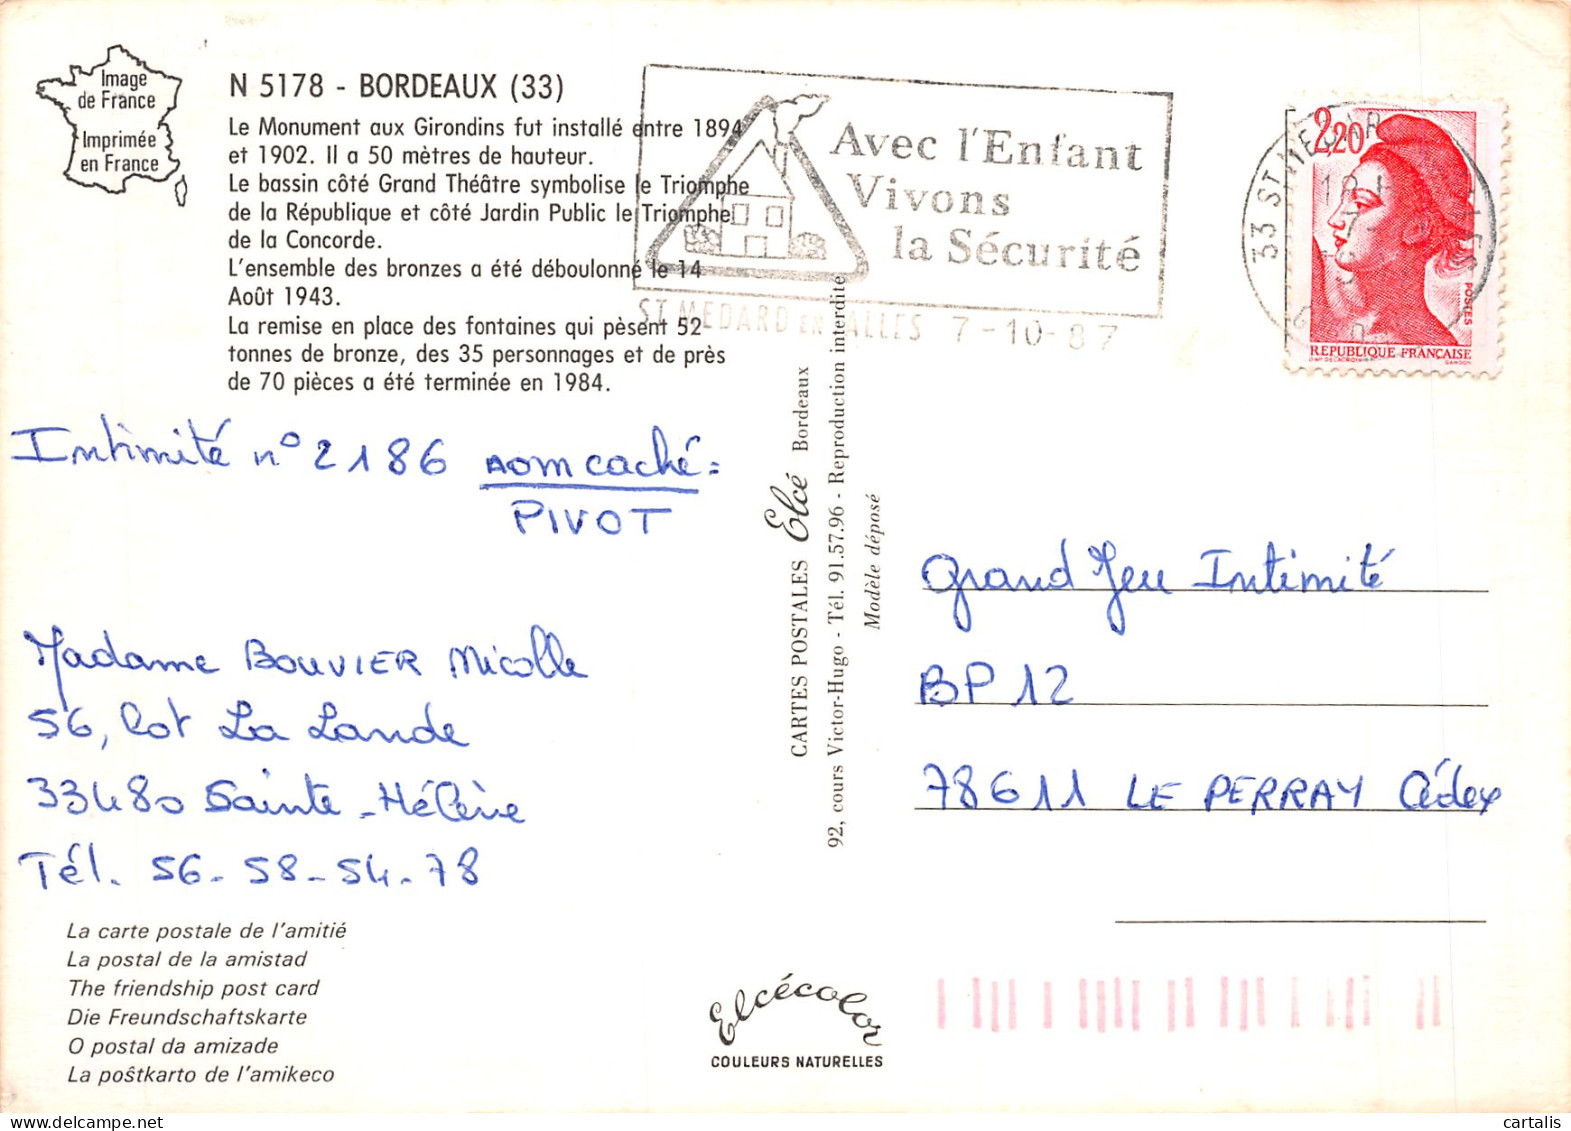 Image
de France
Imprimée
en France
N 5178 - BORDEAUX (33)
Le Monument aux Girondins fut installé entre 1894
et 1902. Il a 50 mètres de hauteur.
Le bassin côté Grand Théâtre symbolise le Triomphe
de la République et côté Jardin Public le Triomphe
de la Concorde.
L'ensemble des bronzes a été déboulonné le 14
Août 1943.
La remise en place des fontaines qui pèsent 52
tonnes de bronze, des 35 personnages et de près
de 70 pièces a été terminée en 1984.
Avec l'Enfant
Vivons
la Sécurité
ST MEDARD EN JALLES 7-10-87
33 ST MEDAR
2,20
POSTES
REPUBLIQUE FRANÇAISE
Intimité n° 2186 nom caché :
PIVOT
Madame BOUVIER Nicolle
56, lot La Lande
33480 Sainte-Hélène
Tél. 56-58-54-78
La carte postale de l'amitié
La postal de la amistad
The friendship post card
Die Freundschaftskarte
O postal da amizade
La poŝtkarto de l'amikeco
CARTES POSTALES Elcé Bordeaux
92, cours Victor-Hugo - Tél. 91.57.96 - Reproduction interdite
Modèle déposé
Elcécolor
COULEURS NATURELLES
Grand Jeu Intimité
BP 12
78611 LE PERRAY Cédex
cartalis
delcampe.net